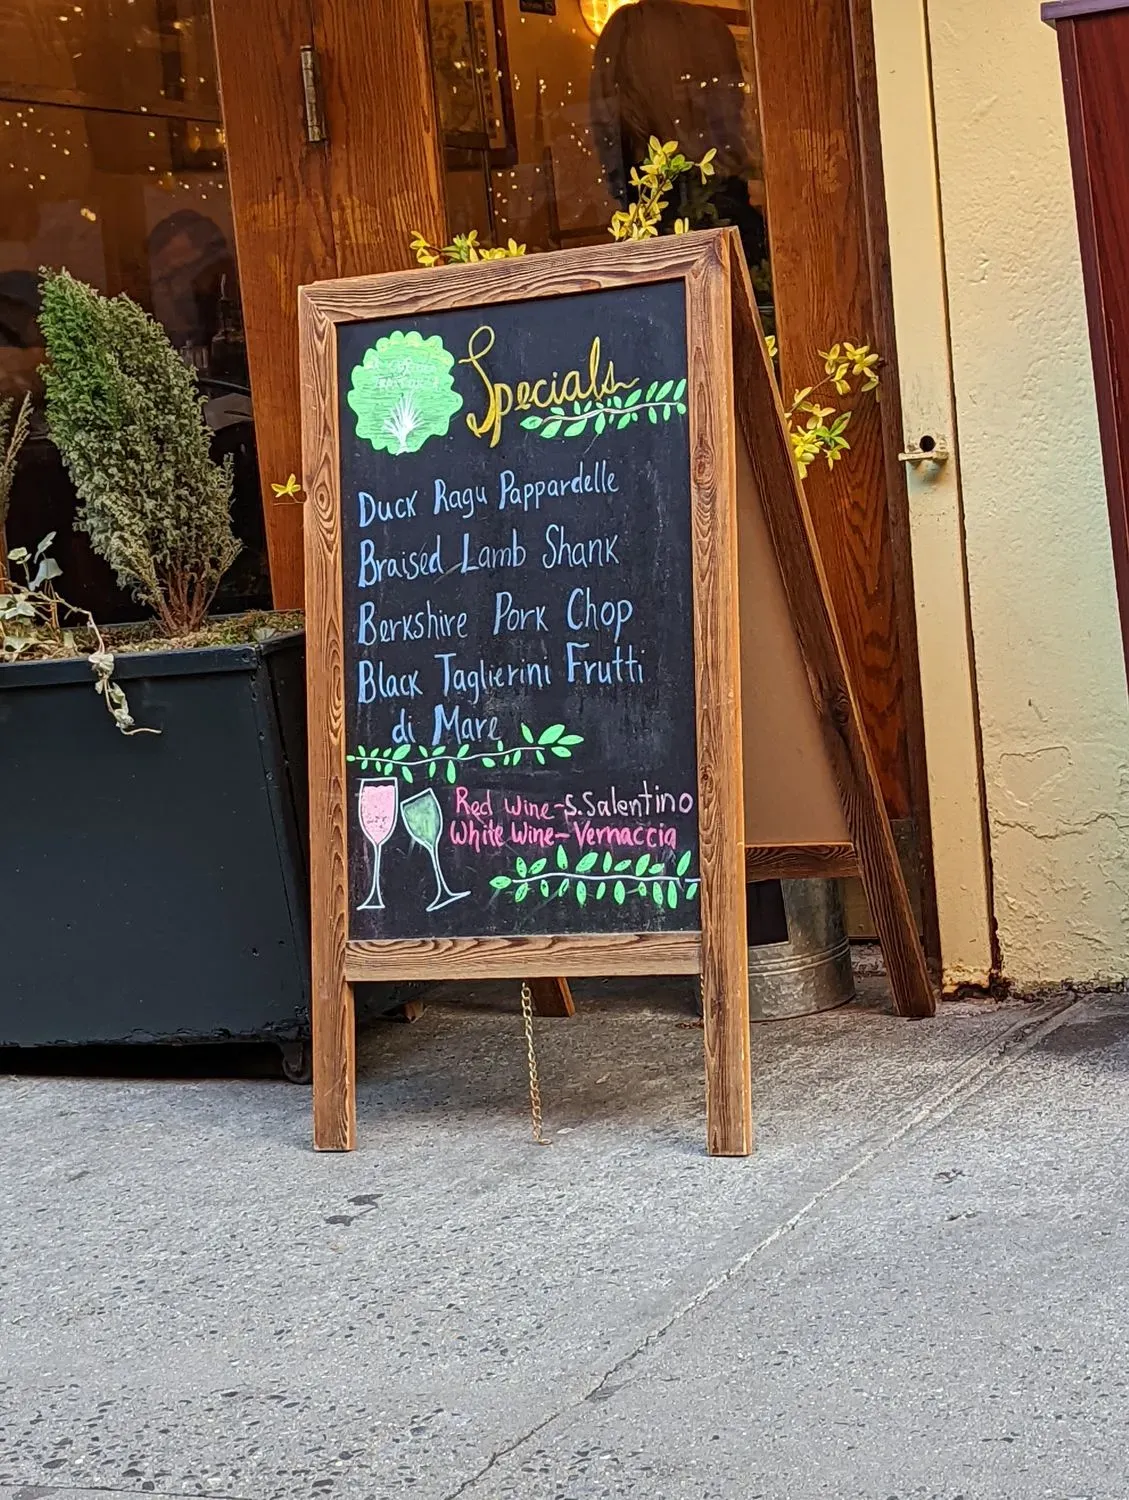 Specials
Duck Ragu Pappardelle
Braised Lamb Shank
Berkshire Pork Chop
Black Taglierini Frutti
di Mare
Red wine-S.Salentino
White Wine-Vernaccia